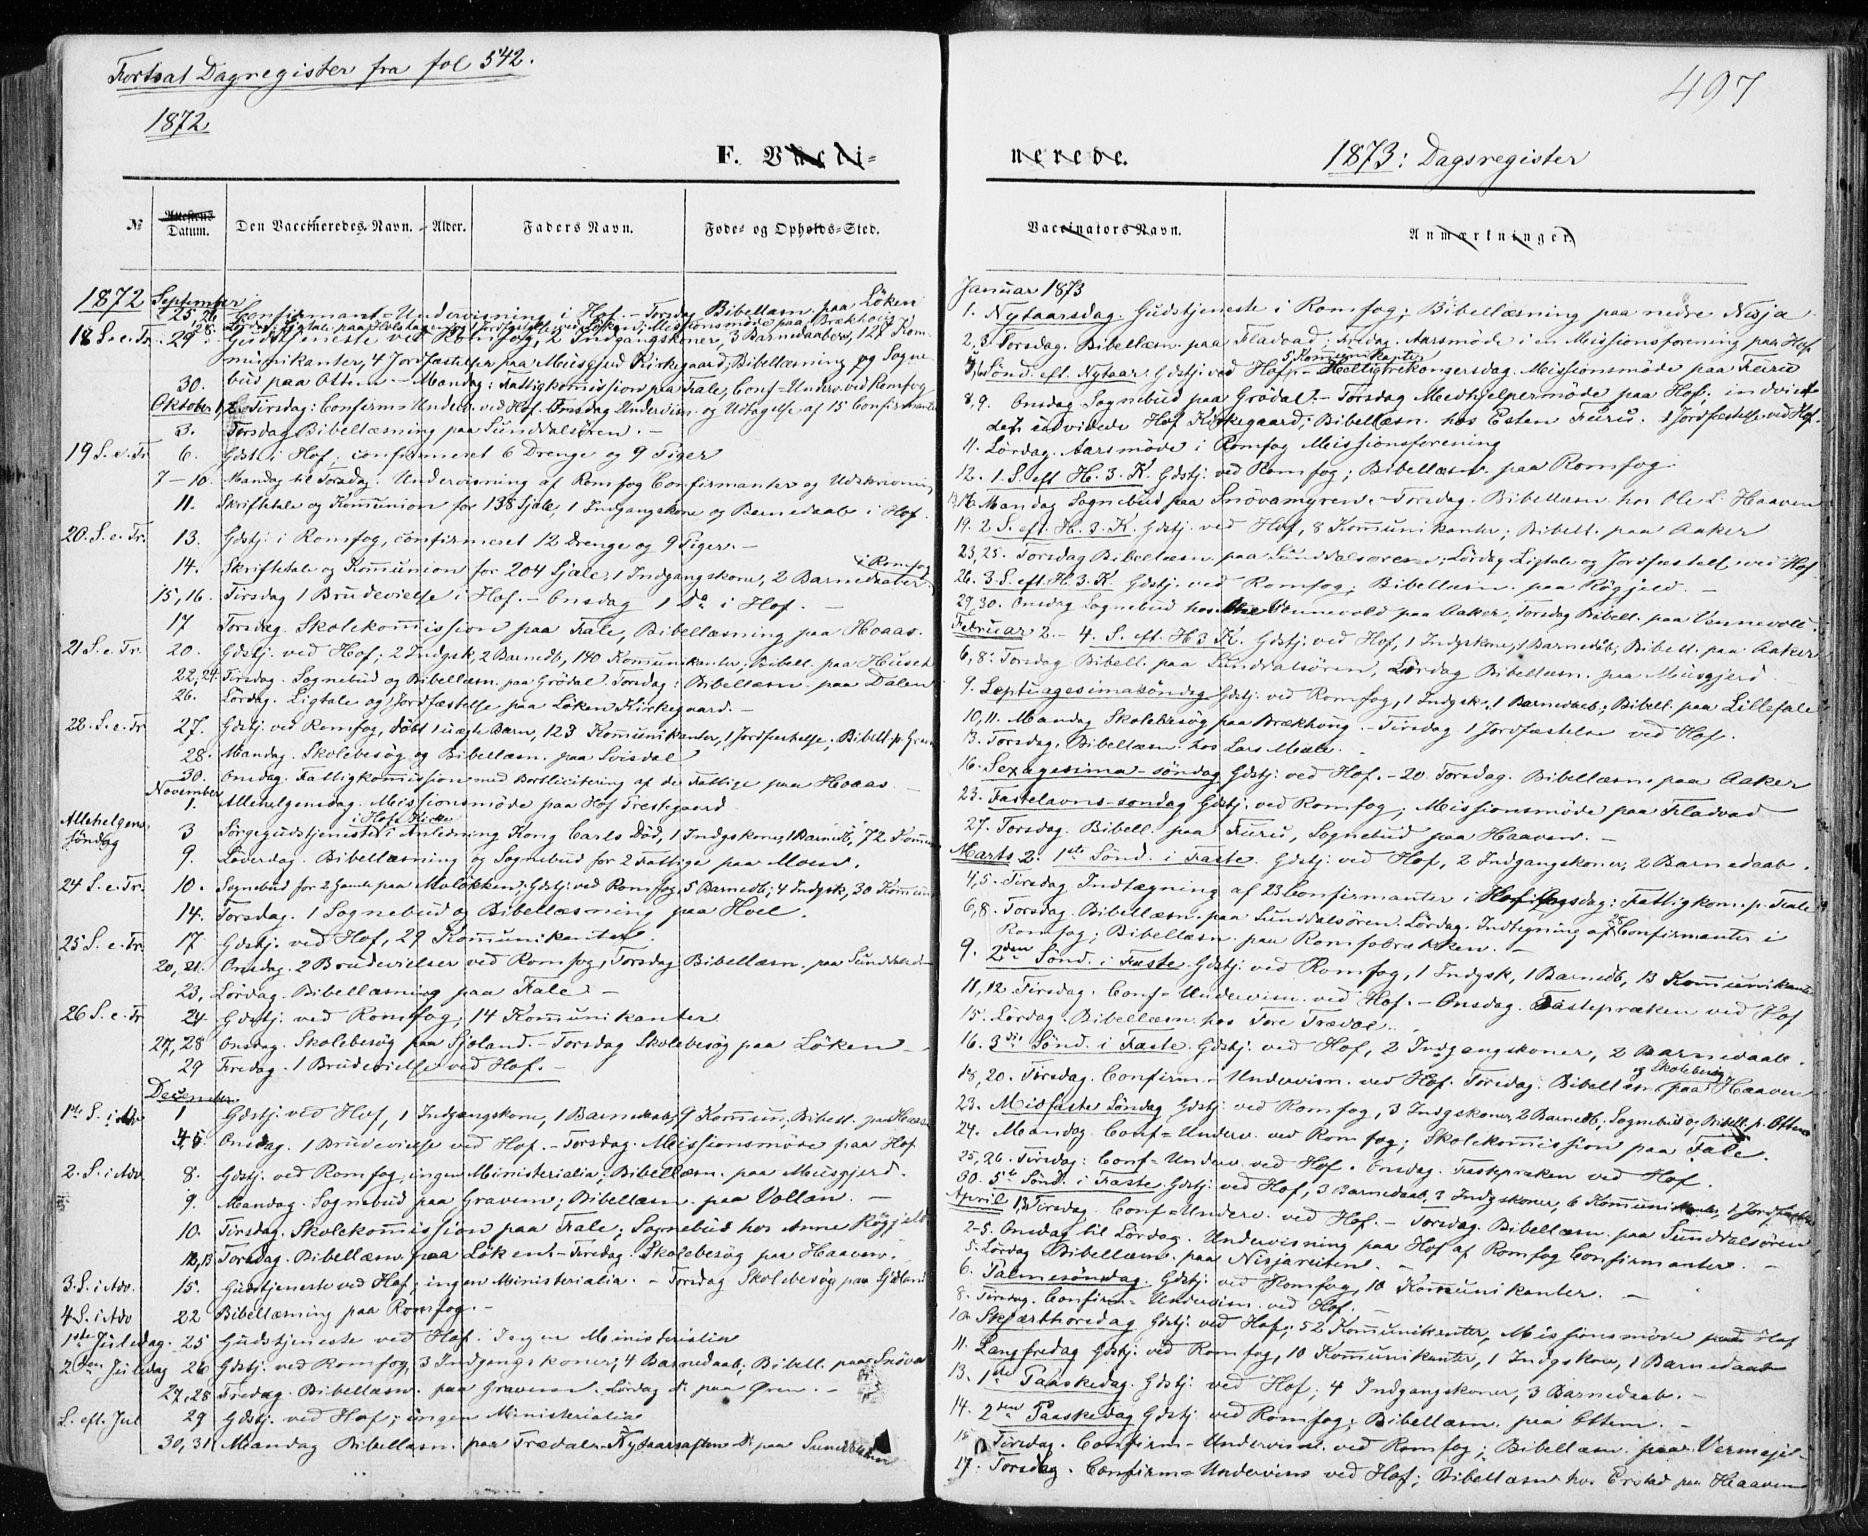 Fortsat Dagregister fra fol 542.
1872
497
F. Vacci=
nerede.
1873: Dagsregister
№
Attestens Datum.
Den Vaccineredes Navn.
Alder.
Faders Navn.
Føde- og Opholds-Sted.
Vaccinators Navn.
Anmærkninger.
1872 September
25, 26 Confirmant=Undervisning i Hof. - Torsdag Bibellæsn. paa Löken
18 S. e. Tr. 29 Gudstjeneste ved Romfog, 2 Indgangskoner, 3 Barnedaaber, 127 Kom-
munikanter, 4 Jordfæstelser paa Musgjerd Kirkegaard; Bibellæsning og Sogne-
30. bud paa Ottem - Mandag: Fattigkomission paa Fale, Conf=Underv. ved Romfog
Oktober 1,2. Tirsdag: Confirm=Underv. ved Hof. Onsdag Undervisn. og Udtagelse af 15 Confirmanter
3. Torsdag Bibellæsning paa Sunddalsören. -
19 S. e. Tr. 6. Gdst. i Hof; confirmeret 6 Drenge og 9 Piger
7-10. Mandag til Torsdag. Undervisning af Romfog Confirmanter og Udskrivning
11. Skriftetale og Komunion for 138 Sjæle, 1 Indgangskone og Barnedaab i Hof.
20. S. e. Tr. 13. Gdstj. i Romfog, confirmeret 12 Drenge og 9 Piger. -
14. Skriftetale og Komunion for 204 Sjæle, 1 Indgangskone, 2 Barnedaaber i Romfog
15, 16. Tirsdag 1 Brudevielse i Hof. - Onsdag 1 Do i Hof. -
17 Torsdag. Skolekomission paa Fale, Bibellæsning paa Hoaas.
21 S. e. Tr. 20. Gdstj. ved Hof; 2 Indgsk, 2 Barnedb, 140 Komunikanter, Bibell. paa Huset
22, 24 Tirsdag. Sognebud og Bibellæsn. paa Grödal. Torsdag: Bibellæsn. paa Dalen
26. Lördag. Ligtale og Jordfæstelse paa Löken Kirkegaard. -
22. S. e. Tr. 27. Gdstj. ved Romfog, döbt 1 uægte Barn, 123 Komunikanter, 1 Jordfæstelse, Bibell. p. Gravem
28. Mandag. Skolebesög og Bibellæsn. paa Svisdal
30. Onsdag. Fattigkomission med Bortlicitering af de Fattige paa Hoaas -
November 1. Allehelgensdag. Missionsmöde paa Hof Prestegaard
i Hofs Kirke
Allehelgens söndag 3 Sörgegudstjeneste i Anledning Kong Carls Död, 1 Indgskone, 1 Barnedb, 72 Komun
9. Löverdag. Bibellæsning og Sognebud for 2 Fattige paa Moen.
24 S. e. Tr. 10. Sognebud for 2 Gamle paa Moløkken; Gdstj. ved Romfog, 5 Barnedb; 4 Indgsk, 30 Komun
14. Torsdag. 1 Sognebud og Bibellæsning paa Hoel.
25 S. e. Tr. 17 Gdstj. ved Hof, 29 Komunikanter.
20, 21. Onsdag. 2 Brudevielser ved Romfog, Torsdag Bibellæsn. paa Sunddalsören
23, Lördag. Bibellæsning paa Fale -
26 S. e. Tr. 24 Gdstj. ved Romfog; 14 Komunikanter
27, 28 Onsdag. Skolebesög paa Sjöland. - Torsdag Skolebesög paa Löken -
29 Fredag. 1 Brudevielse ved Hof. -
December
1ste S. i Adv 1 Gdstj. ved Hof, 1 Indgangskone, 1 Barnedaab, 9 Komun., Bibell. paa Haaven
4,5. Onsdag. 1 Brudevielse ved Hof. - Torsdag. Missionsmöde paa Hof
2. S. i Adv. 8. Gdstj. ved Romfog, ingen Ministerialia, Bibellæsn. paa Musgjerd.
9. Mandag. Sognebud paa Gravem, Bibellæsn. paa Vollan. -
10. Tirsdag. Skolekomission paa Fale; Sognebud hos Anne Rögjeld
12, 13 Torsdag. Bibellæsn. paa Löken. - Fredag. Skolebesög paa Haaven.
3. S. i Adv. 15. Gudstjeneste ved Hof; ingen Ministerialia. - Torsdag Skolebesög paa Sjöland
4 S. i Adv 22 Bibellæsning paa Romfog. -
1ste Juledag. 25 Gudstjeneste ved Hof. Ingen Ministerialia
2den Juledag 26 Gdstj. ved Romfog, 3 Indgangskoner; 4 Barnedaab; Bibell. paa Snöva
27, 28 Fredag. Bibellæsn. paa Gravem. Lördag do. paa Øren. -
S. eft. Jul 29 Gdstj. ved Hof; ingen Ministerialia
30, 31 Mandag Bibellæsn. paa Trædal. Nytaarsaften do. paa Sunddalsören
Januar 1873
1. Nytaarsdag. Gudstjeneste i Romfog; Bibellæsning paa nedre Nisja.
2, 3. Torsdag. Bibellæsn. paa Fladvad; Fredag. Aarsmöde i en Missionsforening paa Hof
5, 6. Sønd. eft. Nytaar. Gdstj. ved Hof, 5 Komunikanter - Helligtrekongersdag. Missionsmöde paa Furu
8, 9. Onsdag Sognebud paa Grödal. - Torsdag Medhjelpermöde paa Hof; indviet
det udvidede Hof Kirkegaard; Bibellæsn. hos Esten Furu. 1 Jordfæstelse ved Hof.
11. Lördag. Aarsmöde i Romfog Missionsforening
12. 1. S. eft H. 3. K. Gdstj. ved Romfog; Bibellæsn. paa Romfog.
13, 16. Mandag Sognebud paa Snövamyren. - Torsdag. Bibellæsn. hos Ole L. Haaven
19. 2. S. eft H. 3. K. Gdstj. ved Hof, 8 Komunikanter; Bibell. paa Aaker
23, 25. Torsdag Bibellæsn. paa Sunddalsoren; Lördag Ligtale og Jordfæstelse ved Hof
26. 3. S. eft H. 3. K. Gdstj. ved Romfog, Bibellæsn. paa Rögjeld. -
29, 30. Onsdag Sognebud hos Ole Vennevold paa Aaker; Torsdag Bibell. paa Vennevold.
Februar 2 - 4. S. eft. H 3 K. Gdstj. ved Hof, 1 Indgskone, 1 Barnedb; Bibell. paa Aaker
6, 8. Torsdag Bibell. paa Sunddalsören, Lördag Bibellæsn. paa Musgjerd -
9. Septuagesimasöndag Gdstj. ved Romfog, 1 Indgsk., 1 Barnedaab; Bibell. paa Lillefale
10, 11. Mandag Skolebesög paa Brækhoug. - Tirsdag 1 Jordfæstelse ved Hof.
13. Torsdag. Bibellæsn. hos Lars Mæle. -
16. Sexagesima-söndag Gdstj. ved Hof. - 20. Torsdag. Bibellæsn. paa Aaker
23. Fastelavns-søndag Gdstj. ved Romfog; Missionsmöde paa Fladvad
27. Torsdag. Bibell. paa Furu, Sognebud paa Haaven. -
Marts 2. 1ste Sönd. i Faste. Gdstj. ved Hof, 2 Indgangskoner, 2 Barnedaab.
4, 5. Tirsdag Indtægning af 23 Confirmanter i Hof. Onsdag: Fattigkom. p. Fale
6, 8. Torsdag. Bibellæsn. paa Sunddalsören. Lördag. Indtegning af 28 Confirmanter i
Romfog; Bibellæsn. paa Romfobrækken. -
9. 2den Sönd. i Faste. Gdstj. ved Romfog, 1 Indgsk, 1 Barnedb, 13 Komunikanter
11, 12. Tirsdag. Conf=Undervisn. ved Hof. - Onsdag. Fastepræken ved Hof
15. Lördag. Bibellæsn. hos Tore Trædal.
16. 3die Sönd. i Faste. Gdstj. ved Hof, 2 Indgangskoner, 2 Barnedaab.
18, 20. Tirsdag. Confirm-Undervisn. ved Hof. Torsdag. Bibellæsn. og Skolebesög paa Haaven
23. Midfaste Söndag Gdstj. ved Romfog, 3 Indgskoner, 2 Barnedb; Sognebud og Bibell. p. Ottem
24. Mandag. Conf=Underv. ved Romfog; Skolekomission paa Fale.
25, 26. Tirsdag: Conf=Underv. ved Hof. Onsdag. Fastepræken ved Hof.
30. 5te Sönd. i Faste. Gdstj. ved Hof, 3 Barnedaab, 3 Indgskoner, 6 Komunikanter, 1 Jordfæstelse
April 1,3 Tirsdag. Conf=Underv. ved Hof. - Torsdag. Bibellæsn. paa Sunddalsören
2-5. Onsdag til Lördag. Undervisning paa Hof af Romfog Confirmanter.
5. Lördag Bibellæsn. paa Nisjareiten. -
6. Palmesöndag. Gdstj. ved Romfog, 10 Komunikanter. -
8. Tirsdag. Confirm-Undervisn. ved Hof. -
10. Skjærthorsdag Gdstj. ved Hof; 52 Komunikanter, Missionsmöde paa Hof
11. Langfredag Gdstj. ved Romfog, 10 Komunikanter, 1 Indgskone, 1 Barnedaab
13. 1ste Paaskedag. Gdstj. ved Hof; 4 Indgangskoner, 3 Barnedaab. -
14. 2den Paaskedag Gdstj. ved Romfog; Bibellæsn. paa Ottem. -
15 Tirsdag. Confirm-Undervisn. ved Romfog; Bibellæsn. paa Vermejel-
17. Torsdag. Confirm=Undervisn ved Hof; Bibellæsn hos Erstad paa Haaven